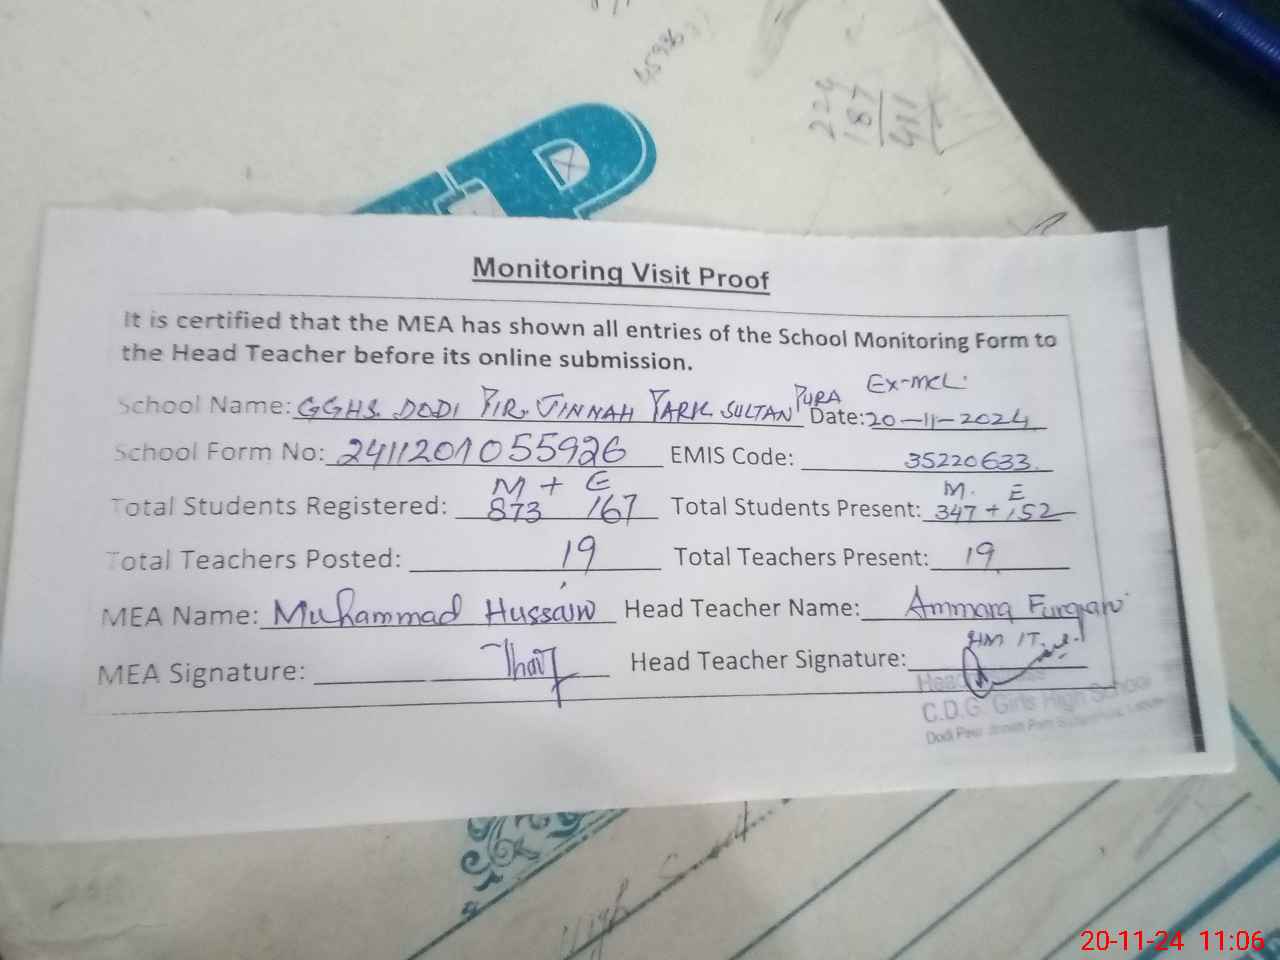 224
187
411
Monitoring Visit Proof
It is certified that the MEA has shown all entries of the School Monitoring Form to
the Head Teacher before its online submission.
Ex-MCL.
School Name: GGHS. DODI PIR. JINNAH PARK SULTAN PURA Date: 20-11-2024
School Form No: 2411201055926 EMIS Code: 35220633
M + E M. E
Total Students Registered: 873 167 Total Students Present: 347 + 152
Total Teachers Posted: 19 Total Teachers Present: 19
MEA Name: Muhammad Hussain Head Teacher Name: Ammara Furqan
HM IT
MEA Signature: Head Teacher Signature:
Head
C.D.G. Girls High School
Dodi
20-11-24 11:06